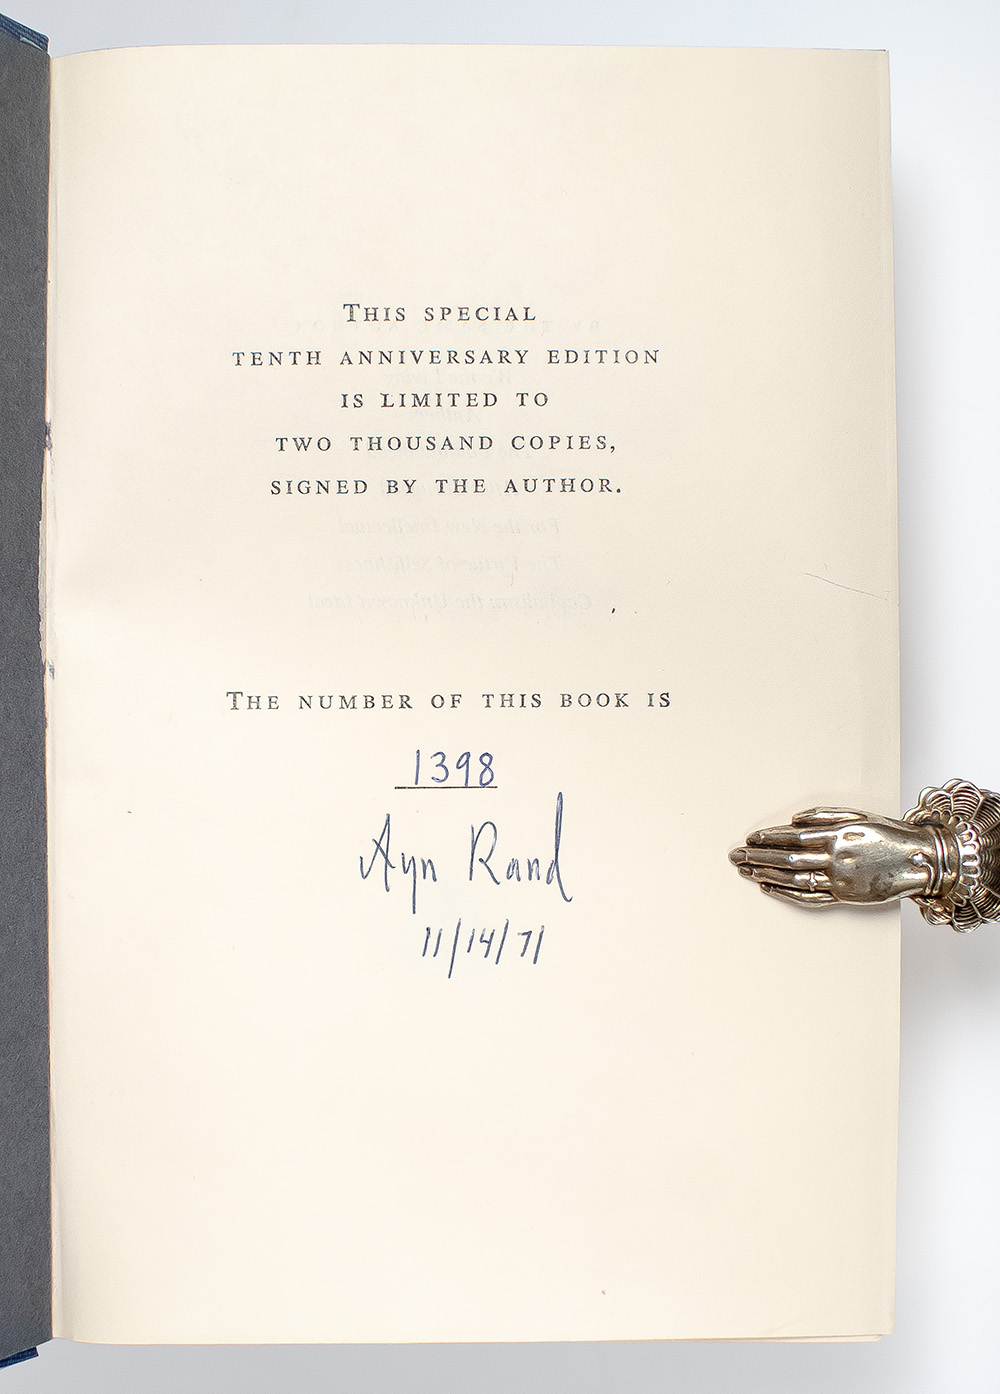 THIS SPECIAL
TENTH ANNIVERSARY EDITION
IS LIMITED TO
TWO THOUSAND COPIES,
SIGNED BY THE AUTHOR.
THE NUMBER OF THIS BOOK IS
1398
Ayn Rand
11/14/71